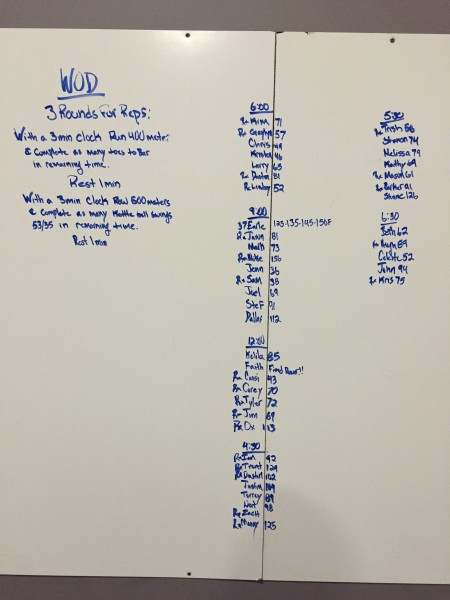 WOD
3 Rounds For Reps:
With a 3min clock Run 400 meters
& Complete as many toes to Bar
in remaining time.
Rest 1 min
With a 3min Clock Row 500 meters
& Complete as many Kettle ball swings
53/35 in remaining time.
Rest 1 min
6:00
Rx Kim 71
Rx 57
Chris 49
Kristen 46
Larry 65
Rx Dustin 81
Rx Lindsay 52
9:00
Earle 125-135-145-150F
Rx Jason 81
Math 73
Rx Mike 156
Jenn 36
Rx Sam 98
Joel 69
Stef 91
Dallas 112
12:00
85
Faith Fixed Rower!!
Rx Cassi 93
Rx Corey 70
Rx Tyler 72
Rx Jim 69
Rx Ox 113
4:30
Rx 92
Rx Trent 129
Rx Dustin 102
Justin 109
Torrey 89
98
Rx Zach
Rx Manny 125
5:30
Rx Trish 86
Sharon 74
Melissa 79
Kathy 69
Rx Mason 61
Rx Parker 91
Shane 126
6:30
Beth 62
Rx 89
Celeste 52
John 94
Rx Kris 75